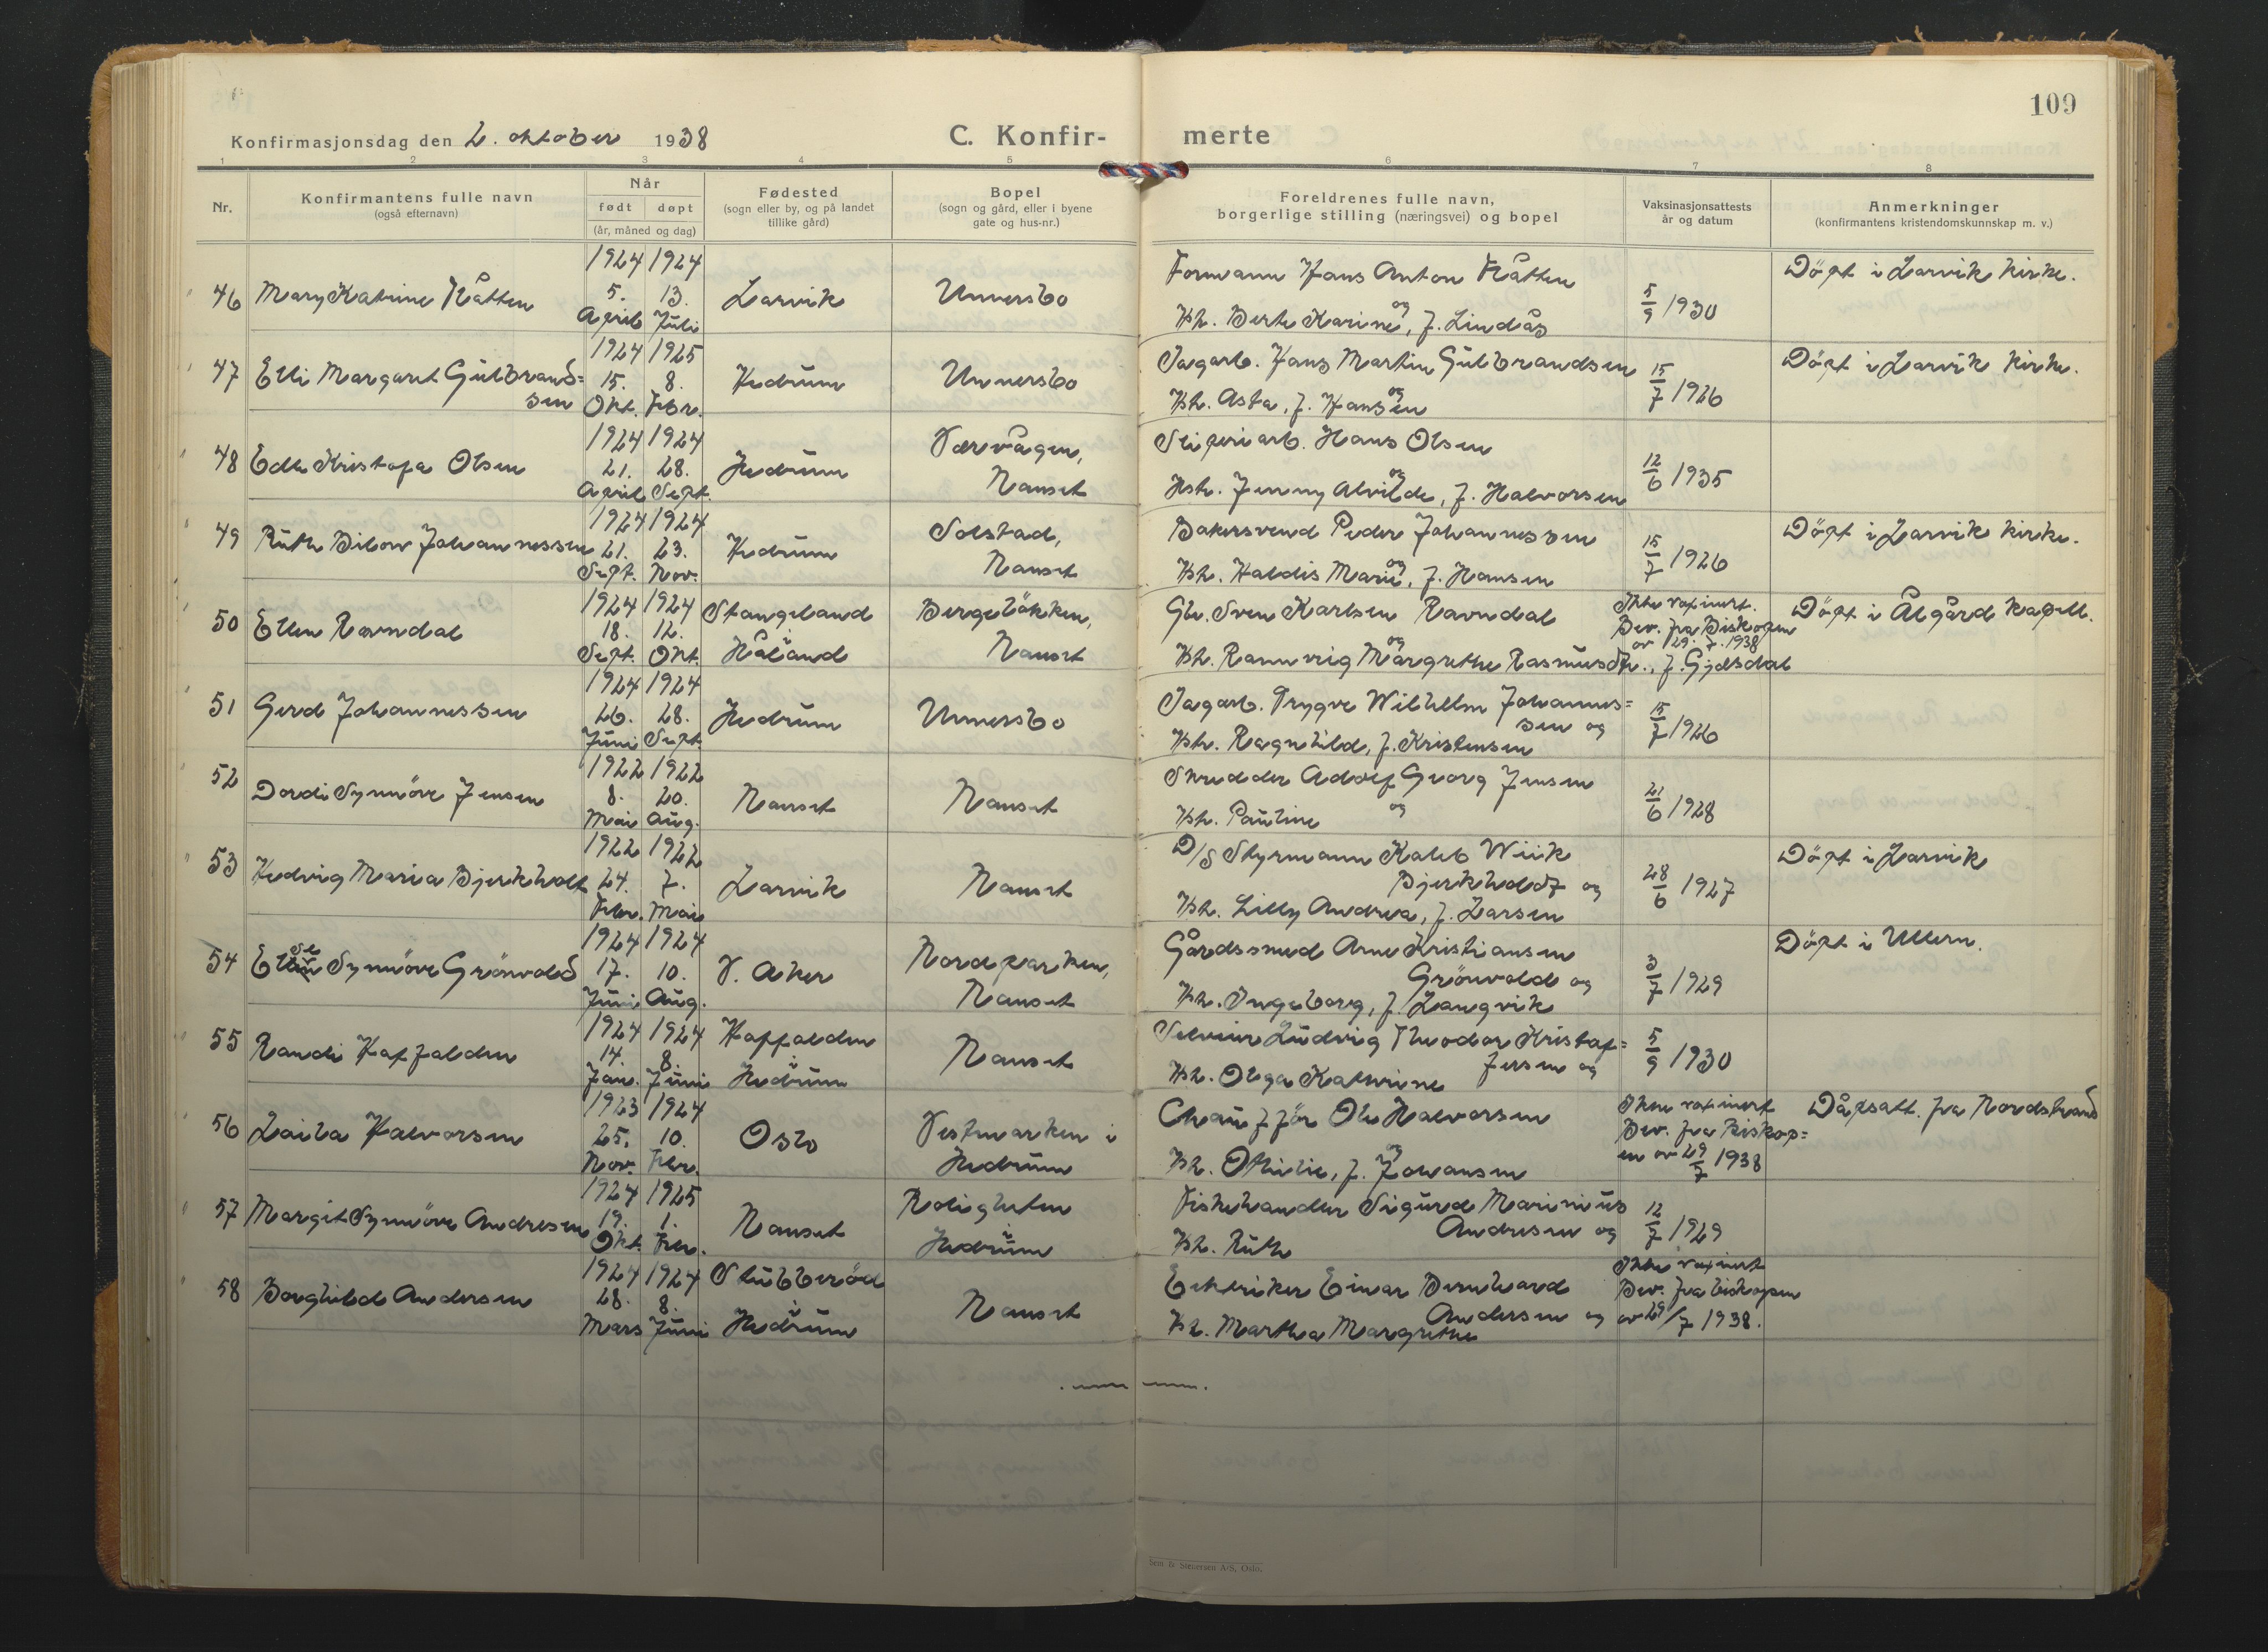 109
Konfirmasjonsdag den 2. oktober 1938
C. Konfir-merte
1 2 3 4 5 6 7 8
Nr.
Konfirmantens fulle navn
(også efternavn)
Når
født døpt
(år, måned og dag)
Fødested
(sogn eller by, og på landet
tillike gård)
Bopel
(sogn og gård, eller i byene
gate og hus-nr.)
Foreldrenes fulle navn,
borgerlige stilling (næringsvei) og bopel
Vaksinasjonsattests
år og datum
Anmerkninger
(konfirmantens kristendomskunnskap m. v.)
46 Mary KatrineRåtten
1924 1924
5. 13.
April Juli
Larvik
Unnersbo
Formann Hans Anton Råtten
og
H. Berte Karine, f. Lindås
5/9 1930
Döpt i Larvik kirke.
47 Elli Margaret Gulbrand=
sen
1924 1925
15. 8.
Okt. Febr.
Hedrum
Unnersbo
Sagarb. Hans Martin Gulbrandsen
og
H. Asta, f. Hansen
15/7 1926
Döpt i Larvik kirke.
48 Edle Kristofa Olsen
1924 1924
21. 28.
April Sept.
Hedrum
Værvågen,
Nanset
Sliperiarb. Hans Olsen
og
Hstr. Jenny Alvilde, f. Halvorsen
12/6 1935
49 Ruth Bilow Johannessen
1924 1924
21. 23.
Sept. Nov.
Hedrum
Solstad,
Nanset
Bakersvend Peder Johannessen
og
H. Haldis Marie, f. Hansen
15/7 1926
Döpt i Larvik kirke.
50 Ellen Ravndal
1924 1924
18. 12.
Sept. Okt.
Stangeland
i
Håland
Bergslökken,
Nanset
Gbr. Sven Karlsen Ravndal
og
H. Rannveig Margrethe Rasmusdtr., f. Gjelsdal
Ikke vaxinert.
Bev. fra Biskopen
av 29. 7. 1938
Döpt i Ålgård kapell.
51 Gerd Johannessen
1924 1924
26. 28.
Juni Sept.
Hedrum
Unnersbo
Sagarb. Trygve Wilhelm Johannes=
sen og
H. Ragnhild, f. Kristensen
15/7 1926
52 Dordi Synnöve Jensen
1922 1922
8. 20.
Mai Aug.
Nanset
Nanset
Skredder Adolf Georg Jensen
og
H. Pauline
21/6 1928
53 Hedvig Maria Bjerkholt
1922 1922
24. 7.
Febr. Mai
Larvik
Nanset
D/S Styrmann Kaleb Wiik
Bjerkholdt og
H. Lilly Andrea, f. Larsen
28/6 1927
Döpt i Larvik
54 Else Synnöve Grönvold
1924 1924
17. 10.
Juni Aug.
V. Aker
Nordparken,
Nanset
Gårdssmed Arne Kristiansen
Grönvold og
H. Ingeborg, f. Langvik
3/7 1929
Döpt i Ullern.
55 Randi Haffalden
1924 1924
14. 8.
Jan. Juni
Haffalden
i
Hedrum
Nanset
Selveier Ludvig Theodor Kristof=
fersen og
H. Olga Kathrine
5/9 1930
56 Laila Halvorsen
1923 1924
25. 10.
Nov. Febr.
Oslo
Vestmarken i
Hedrum
Chauffför Ole Halvorsen
og
H. Othilie, f. Johansen
Ikke vaxinert
Bev. fra Biskop=
en av 29/7 1938
Dåpsatt. fra Nordstrand
57 Margit Synnöve Andresen
1924 1925
19. 1.
Okt. Febr.
Nanset
Roligheten
i
Hedrum
Fiskehandler Sigurd Marinius
Andresen og
H. Ruth
12/7 1929
58 Borghild Andersen
1924 1924
28. 8.
Mars Juni
Stubberöd
i
Hedrum
Nanset
Elektriker Einar Bernhard
Andersen og
H. Martha Margrethe
Ikke vaxinert
Bev. fra biskopen
av 29/7 1938.
Sem & Stenersen A/S, Oslo.